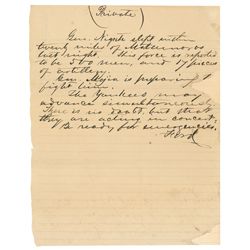 (Private)
Gen. Negrete slept within
twenty miles of Matamoros
last night. His force is reported
to be 500 men, and 17 pieces
of artillery.
Gen. Mejia is preparing to
fight him.
The Yankees may
advance simultaneously.
There is no doubt, but that
they are acting in concert.
Be ready, for emergencies.
Ford